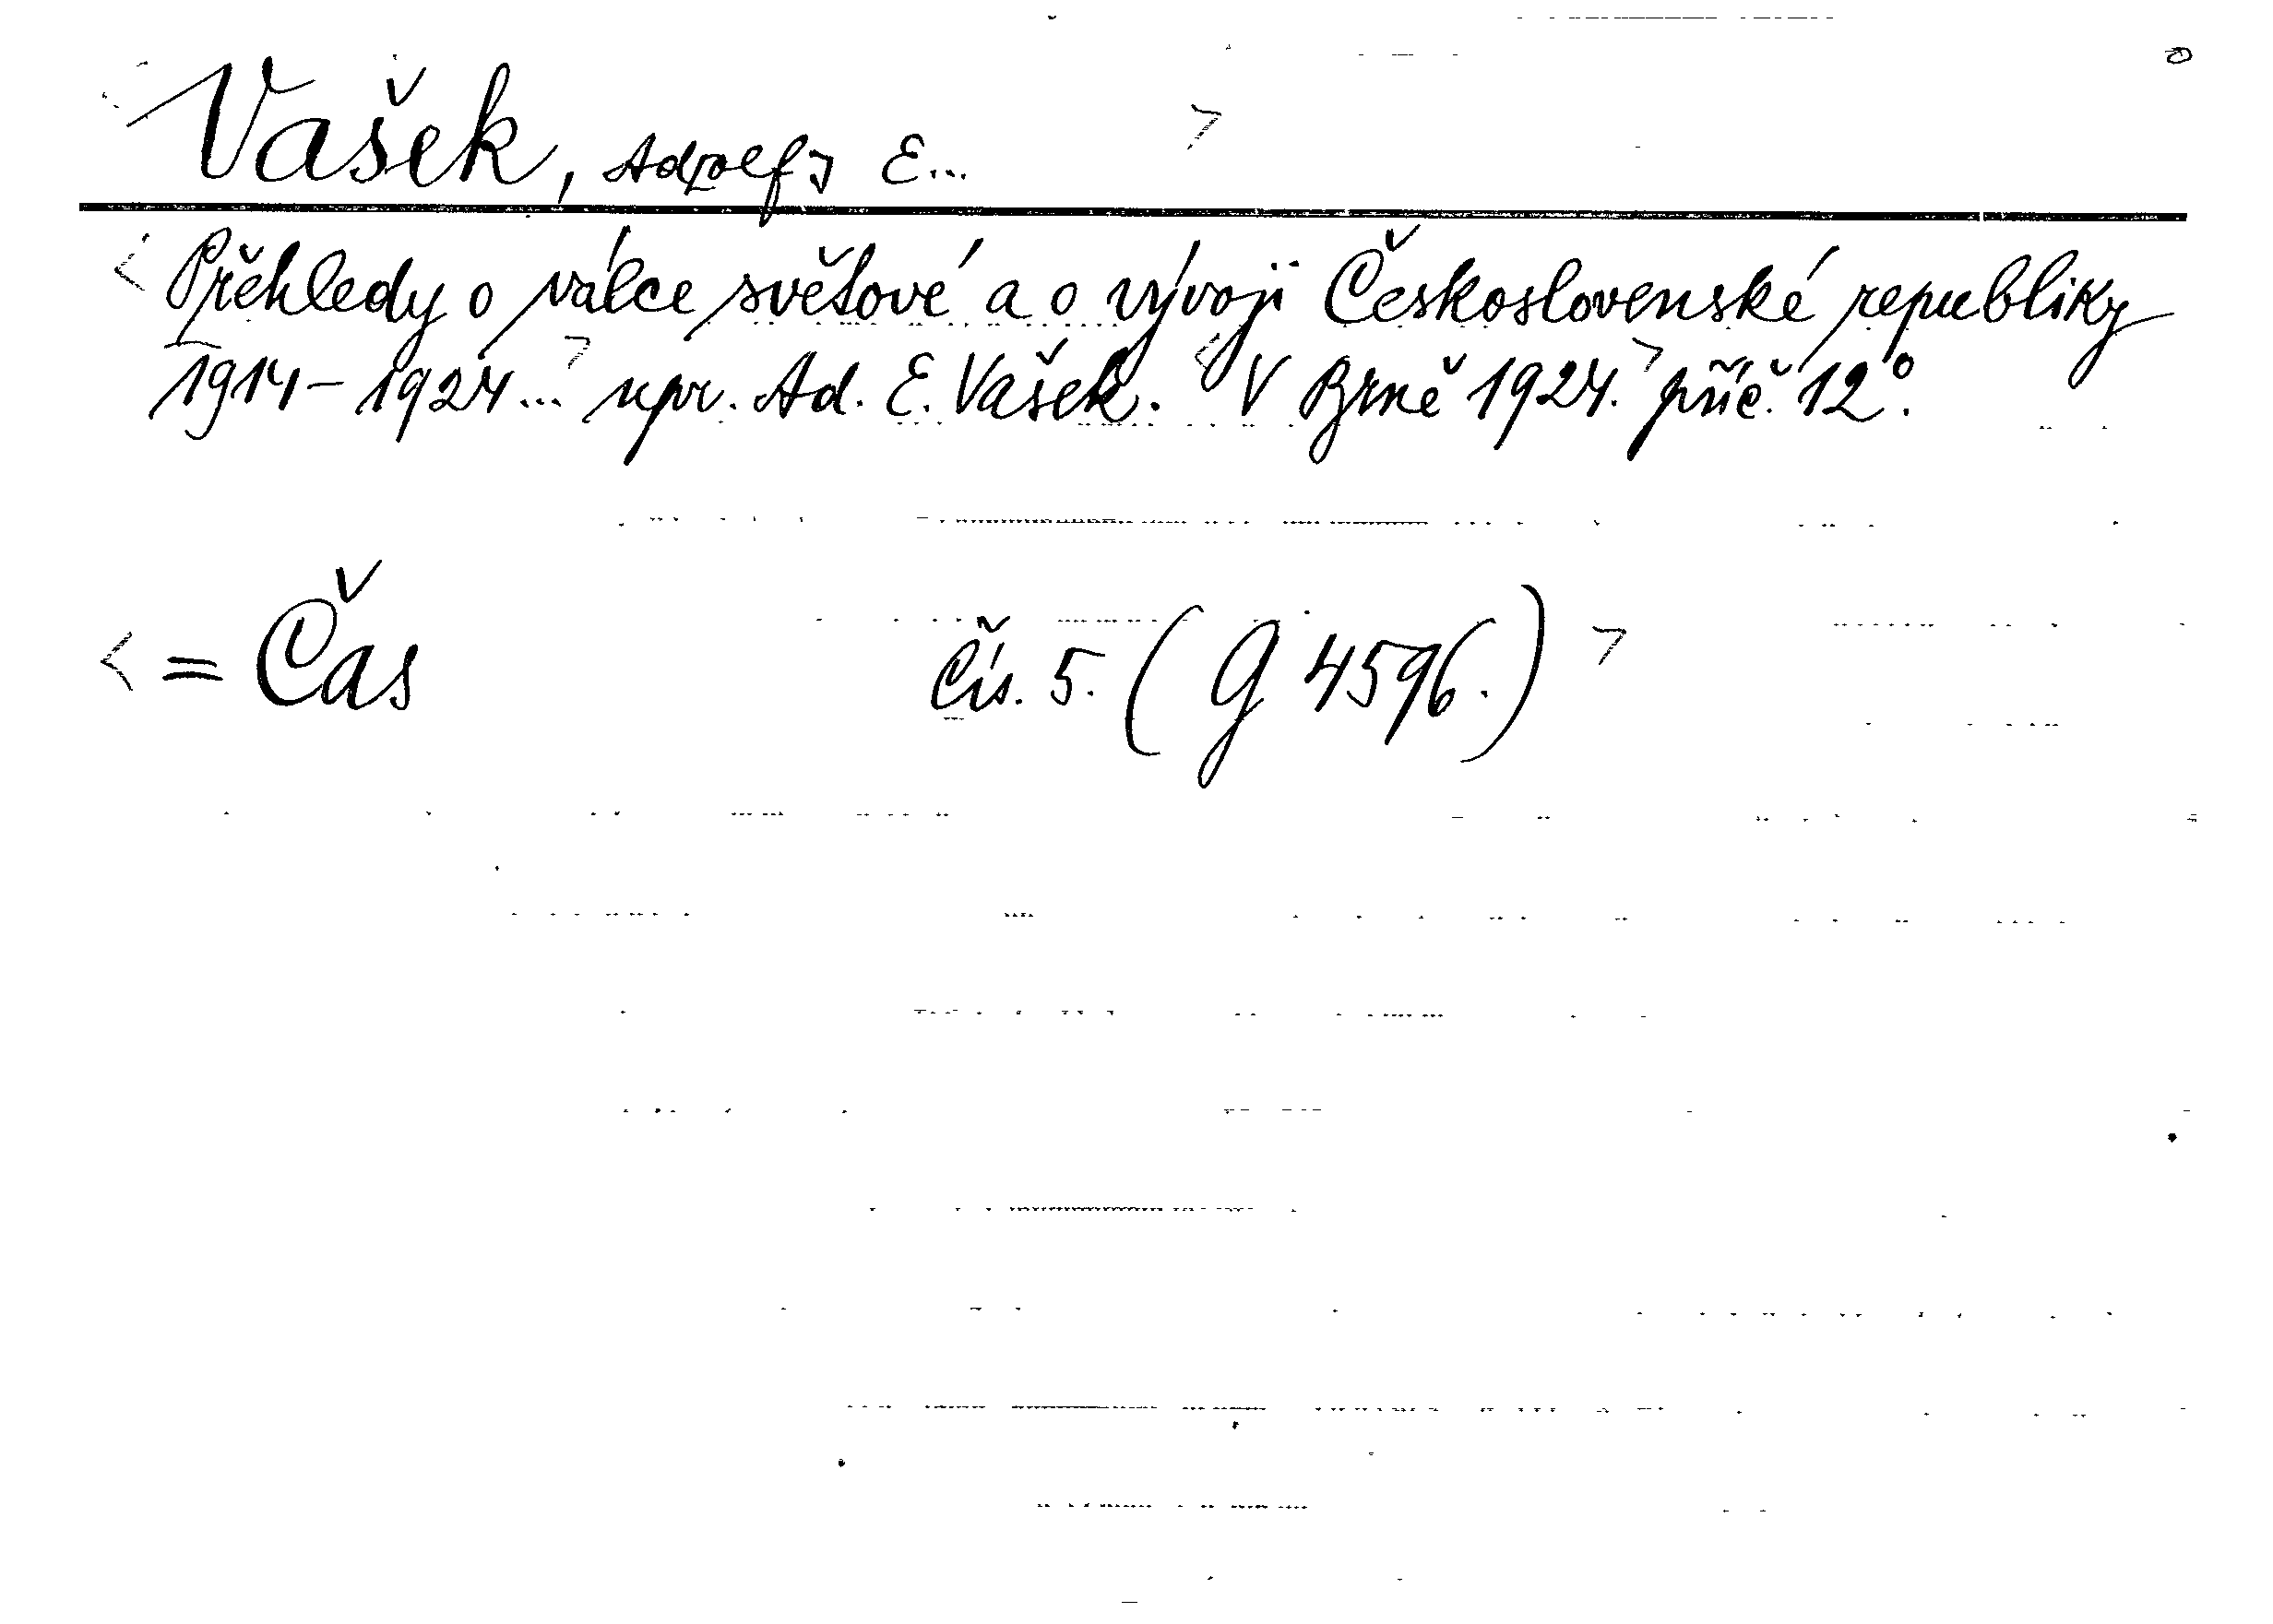 Vašek, Ad[olf] E...
Přěhledy o válce světové a o vývoji Československé republiky
1914–1924... upr. Ad. E. Vašek. V Brně 1924. příč. 12°.
= Čas čís. 5. (G 4596.)